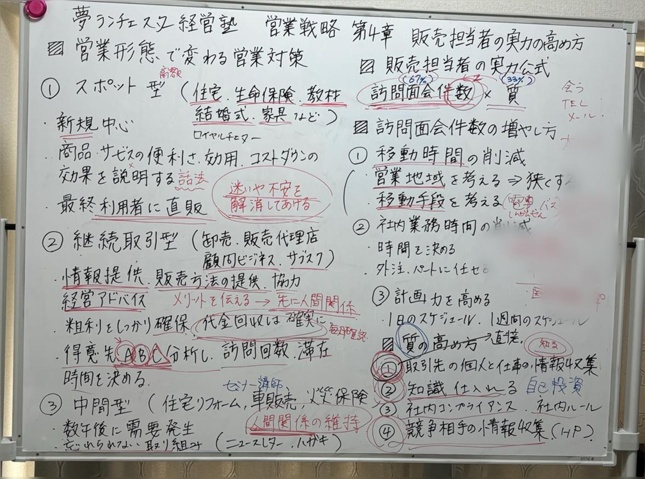 夢ランチェスター経営塾 営業戦略 第4章 販売担当者の実力の高め方
▨ 営業形態で変わる営業対策
① スポット型 (住宅、生命保険、教材
結婚式、家具など)
・新規中心 ロイヤルセミナー
・商品・サービスの便利さ、効用、コストダウンの
効果を説明する 話法
・最終利用者に直販
迷いや不安を
解消してあげる
② 継続取引型 (卸売、販売代理店
顧問ビジネス、サブスク)
・情報提供、販売方法の提供、協力
経営アドバイス メリットを伝える→先に人間関係
・粗利をしっかり確保、代金回収は確実に 毎月確認
・得意先ABC分析し、訪問回数、滞在
時間を決める。
③ 中間型 (住宅リフォーム、車販売、火災保険)
セミナー講師
・数年後に需要発生 人間関係の維持
忘れられない取り組み (ニュースレター、ハガキ)
▨ 販売担当者の実力公式
(67%) (33%)
訪問面会件数 × 質
会う
TEL
メール
▨ 訪問面会件数の増やし方
① 移動時間の削減
・営業地域を考える ⇒ 狭くす
・移動手段を考える 電車 しんかんせん バス
② 社内業務時間の削減
・時間を決める
・外注、パートに任せ
③ 計画力を高める
・1日のスケジュール、1週間のスケジュール
▨ 質の高め方 → 直接 知る
① 取引先の個人と仕事の情報収集
② 知識仕入れる 自己投資
③ 社内コンプライアンス、社内ルール
④ 競争相手の情報収集 (HP)